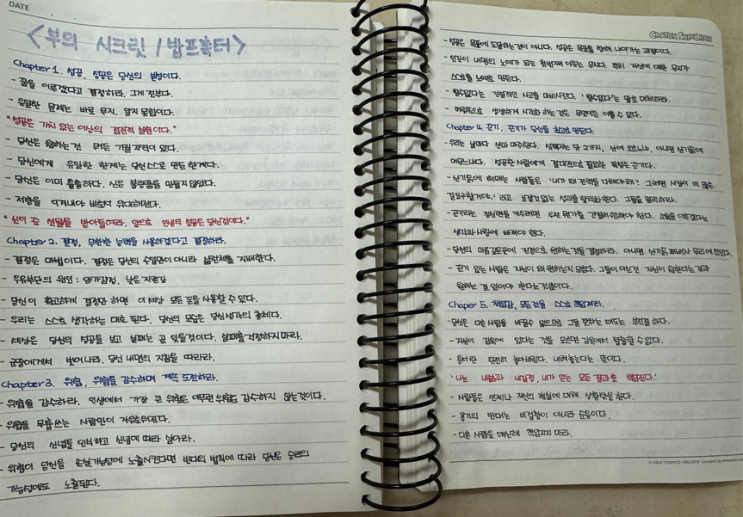 DATE
<부의 시크릿 / 밥프록터>
Chapter 1. 성공, 성공은 당신의 발명이다.
- 꿈을 이루겠다고 결정하라. 그게 전부다.
- 유일한 문제는 바로 무지, 알지 못함이다.
"성공은 가치 있는 이상의 점진적 실현이다."
- 당신은 원하는 것 모든 가질 자격이 있다.
- 당신에게 유일한 한계는 당신 스스로 만든 한계다.
- 당신은 이미 훌륭하다. 신은 불량품을 만들지 않았다.
- 저항을 이겨내야 비로소 위대해진다.
"신이 준 선물을 받아들여라. 앞으로 인생의 성공은 당신 것이다."
Chapter 2. 결정, 무한한 능력을 사용하겠다고 결정하라.
- 결정은 마법이다. 결정은 당신의 수입만이 아니라 삶 전체를 지배한다.
- 우유부단의 원인 : 양가감정, 낮은 자존감
- 당신이 확고하게 결정만 하면 이 세상 모든 도움 사용할 수 있다.
- 우리는 스스로 생각하는 대로 된다. 당신의 모습은 당신 생각의 총체다.
- 세상은 당신의 성공을 보고 살피는 곳 있을 것이다. 실패를 걱정하지 마라.
- 군중에게서 벗어나라, 당신 내면의 지침을 따라라.
Chapter 3. 위험, 위험을 감수하며 계속 도전하라.
- 위험을 감수하라. 인생에서 가장 큰 위험은 아무런 위험도 감수하지 않는 것이다.
- 위험을 무릅쓰는 사람만이 자유로워진다.
- 당신의 신념을 인식하고 신념에 따라 살아라.
- 위험이 당신을 손실 가능성에 노출시킨다면 반대의 법칙에 따라 당신은 승리의
가능성에도 노출된다.
CRAYON SHINCHAN
- 성공은 목표에 도달하는 것이 아니다. 성공은 목표를 향해 나아가는 과정이다.
- 인간이 내면의 노예가 되는 첫번째 이유는 무지다. 특히 자신에 대한 무지가
스스로를 노예로 만든다.
- '할 수 없다'는 개별적인 사고를 마비시킨다. '할 수 없다'는 말로 대체하라.
- 마음속으로 생생하게 시각화 하는 것은 무엇이든 이룰 수 있다.
Chapter 4. 끈기, 끈기가 당신을 최고로 만든다.
- 우리는 날마다 산과 마주한다. 선택지는 단 2가지, 산에 오르느냐, 아니면 산기슭에
머무느냐다. 성공한 사람에게 절대적으로 필요한 특성은 끈기다.
- 산기슭에 헤매는 사람들은 '내가 왜 전력을 다해야 해? 그러면 사장이 더 많은
걸 요구할 거야.' 라고 보잘것 없는 성과를 합리화 한다. 그들을 멀리하라.
- 끈기라는 정신력을 키우려면 우선 뭔가를 간절히 원해야 한다. 꿈을 이루겠다는
생각과 사랑에 빠져야 한다.
- 당신의 마음 깊은 곳에 진정으로 원하는 것을 결정하라. 아니면 산기슭 패배자 무리에 낀다.
- 끈기 있는 사람은 자신이 왜 원하는지 모른다. 그들이 아는 것 자신이 원한다는 것과
원하는 걸 얻어야 한다는 것뿐이다.
Chaper 5. 책임감, 모든 것을 스스로 책임져라.
- 당신은 다른 사람을 바꿀 수 없으므로 그를 탓하는 태도는 부적절 하다.
- 자신이 감옥에 있다는 것을 모르면 감옥에서 탈출할 수 없다.
- 용서란 완전히 놓아버린다. 내려놓는다는 뜻이다.
'나는 내 삶과 내 감정, 내가 얻는 모든 결과를 책임진다.'
- 사람들은 언제나 자신의 현실에 대해 상황 탓을 한다.
- 용기의 반대는 비겁함이 아니라 순응이다.
- 다른 사람을 대신해 책임지지 마라.